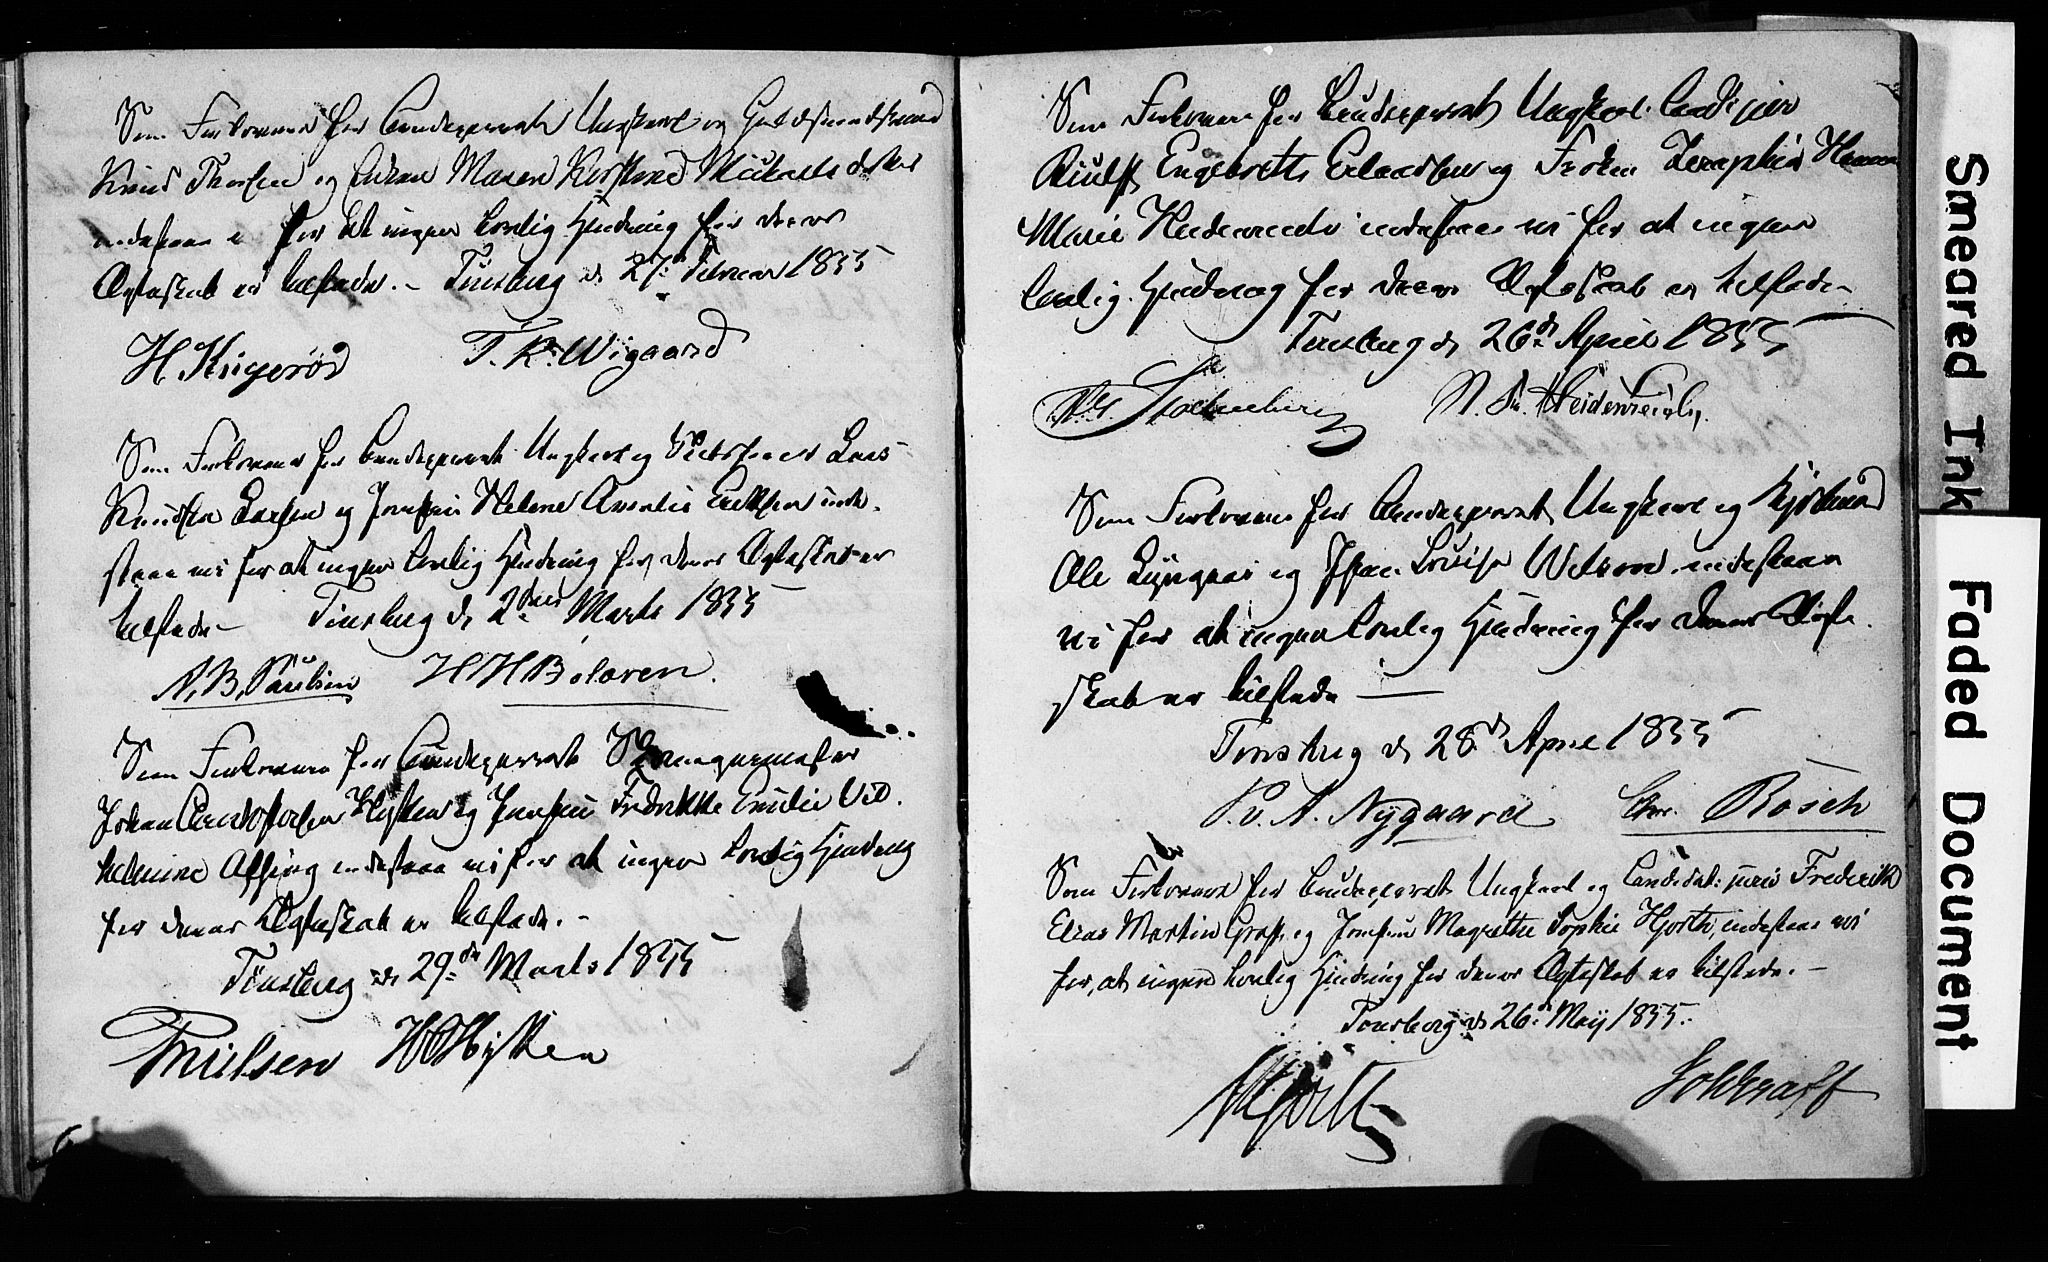 Som Forlovere for Brudeparret Ungkarl og Guldsmedsvend
Knud Thorsen og Enken Maren Kirstine Mikaelsdatter
indestaae vi for at ingen lovlig Hindring for deres
Ægteskab er tilstede. – Tønsberg d. 27de Februar 1855
H. Kigerød T. K. Wigaard
Som Forlovere for Brudeparret Ungkarl og Skibsfører Lars
Knudsen Larsen og Jomfru Helene Amalie Eriksen inde-
staae vi for at ingen lovlig Hindring for deres Ægteskab er
tilstede – Tønsberg d. 2den Marts 1855
N. B. Paulsen H H Bolæren.
Som Forlovere for Brudeparret
Johan Christophersen Hysten og Jomfru Fredrikke Emilie Vil-
helmine indestaae vi for at ingen lovlig Hindring
for deres Ægteskab er tilstede. –
Tønsberg d. 29de Marts 1855
Nielsen H O Hysten
Som Forlovere for Brudeparret Ungkarl Cand: juris
Riulf Engebreth Erlandsen og Frøken Zeraphia Hanna
Marie indestaae vi for at ingen
lovlig Hindring for deres Ægteskab er tilstede –
Tønsberg d. 26de April 1855
Stoltenberg N. S. Heidenreich
Som Forlovere for Brudeparret Ungkarl og Kjøbmand
Ole Lyngaas og Louise Wilson indestaae
vi for at ingen lovlig Hindring for deres Ægte-
skab er tilstede –
Tønsberg d. 28de April 1855
P. v. A. Nygaard Chr. Rosch
Som Forlovere for Brudeparret Ungkarl og Candidat: juris Frederik
Elias Martin Graff og Jomfru Magrethe Sophie Hjorth, indestaae vi
for, at ingen lovlig Hindring for deres Ægteskab er tilstede. –
Tønsberg d. 26de Maij 1855.
Hjorth
Smeared Ink
Faded Document